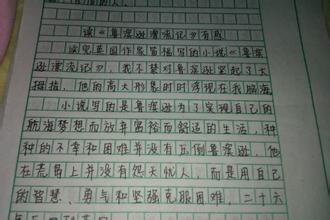 的人。
读《鲁滨逊漂流记》有感
读完英国作家笛福写的小说《鲁滨
逊漂流记》,我不禁对鲁滨逊竖起了大
拇指,他的高大形象时时浮现在我脑海
小说写的是鲁滨逊为了实现自己的
航海梦想而放弃富裕而舒适的生活,种
种的不幸和困难并没有倒鲁滨逊,他
在荒岛上并没有怨天忧人,而是用自己
的智慧、勇气和坚强克服困难,二十六